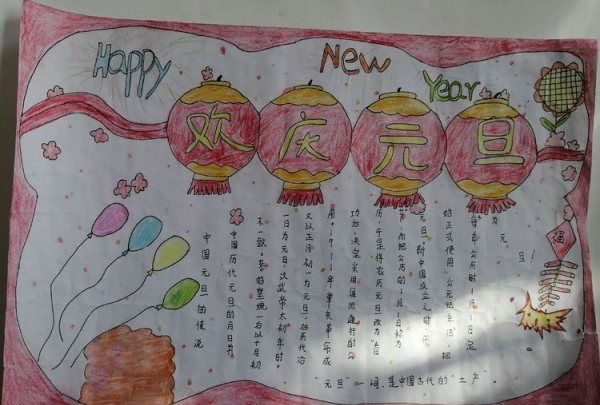 Happy New Year
欢庆元旦
福
中国元旦的传说
中国历代元旦的月日并
不一致。秦始皇统一后以十月初
一日为元旦,汉武帝太初年时。
又以正月初一为元旦,后历代沿
用。1911年辛亥革命成
功后,决定采用国际通行的公
历,于是将农历元旦改为“春
节”,而把公历的1月1日称为
元旦。新中国成立之时,
始正式使用“公元纪年法”,把
每年公历的1月1日定
为元旦!
“元旦”一词,是中国古代的“土产”